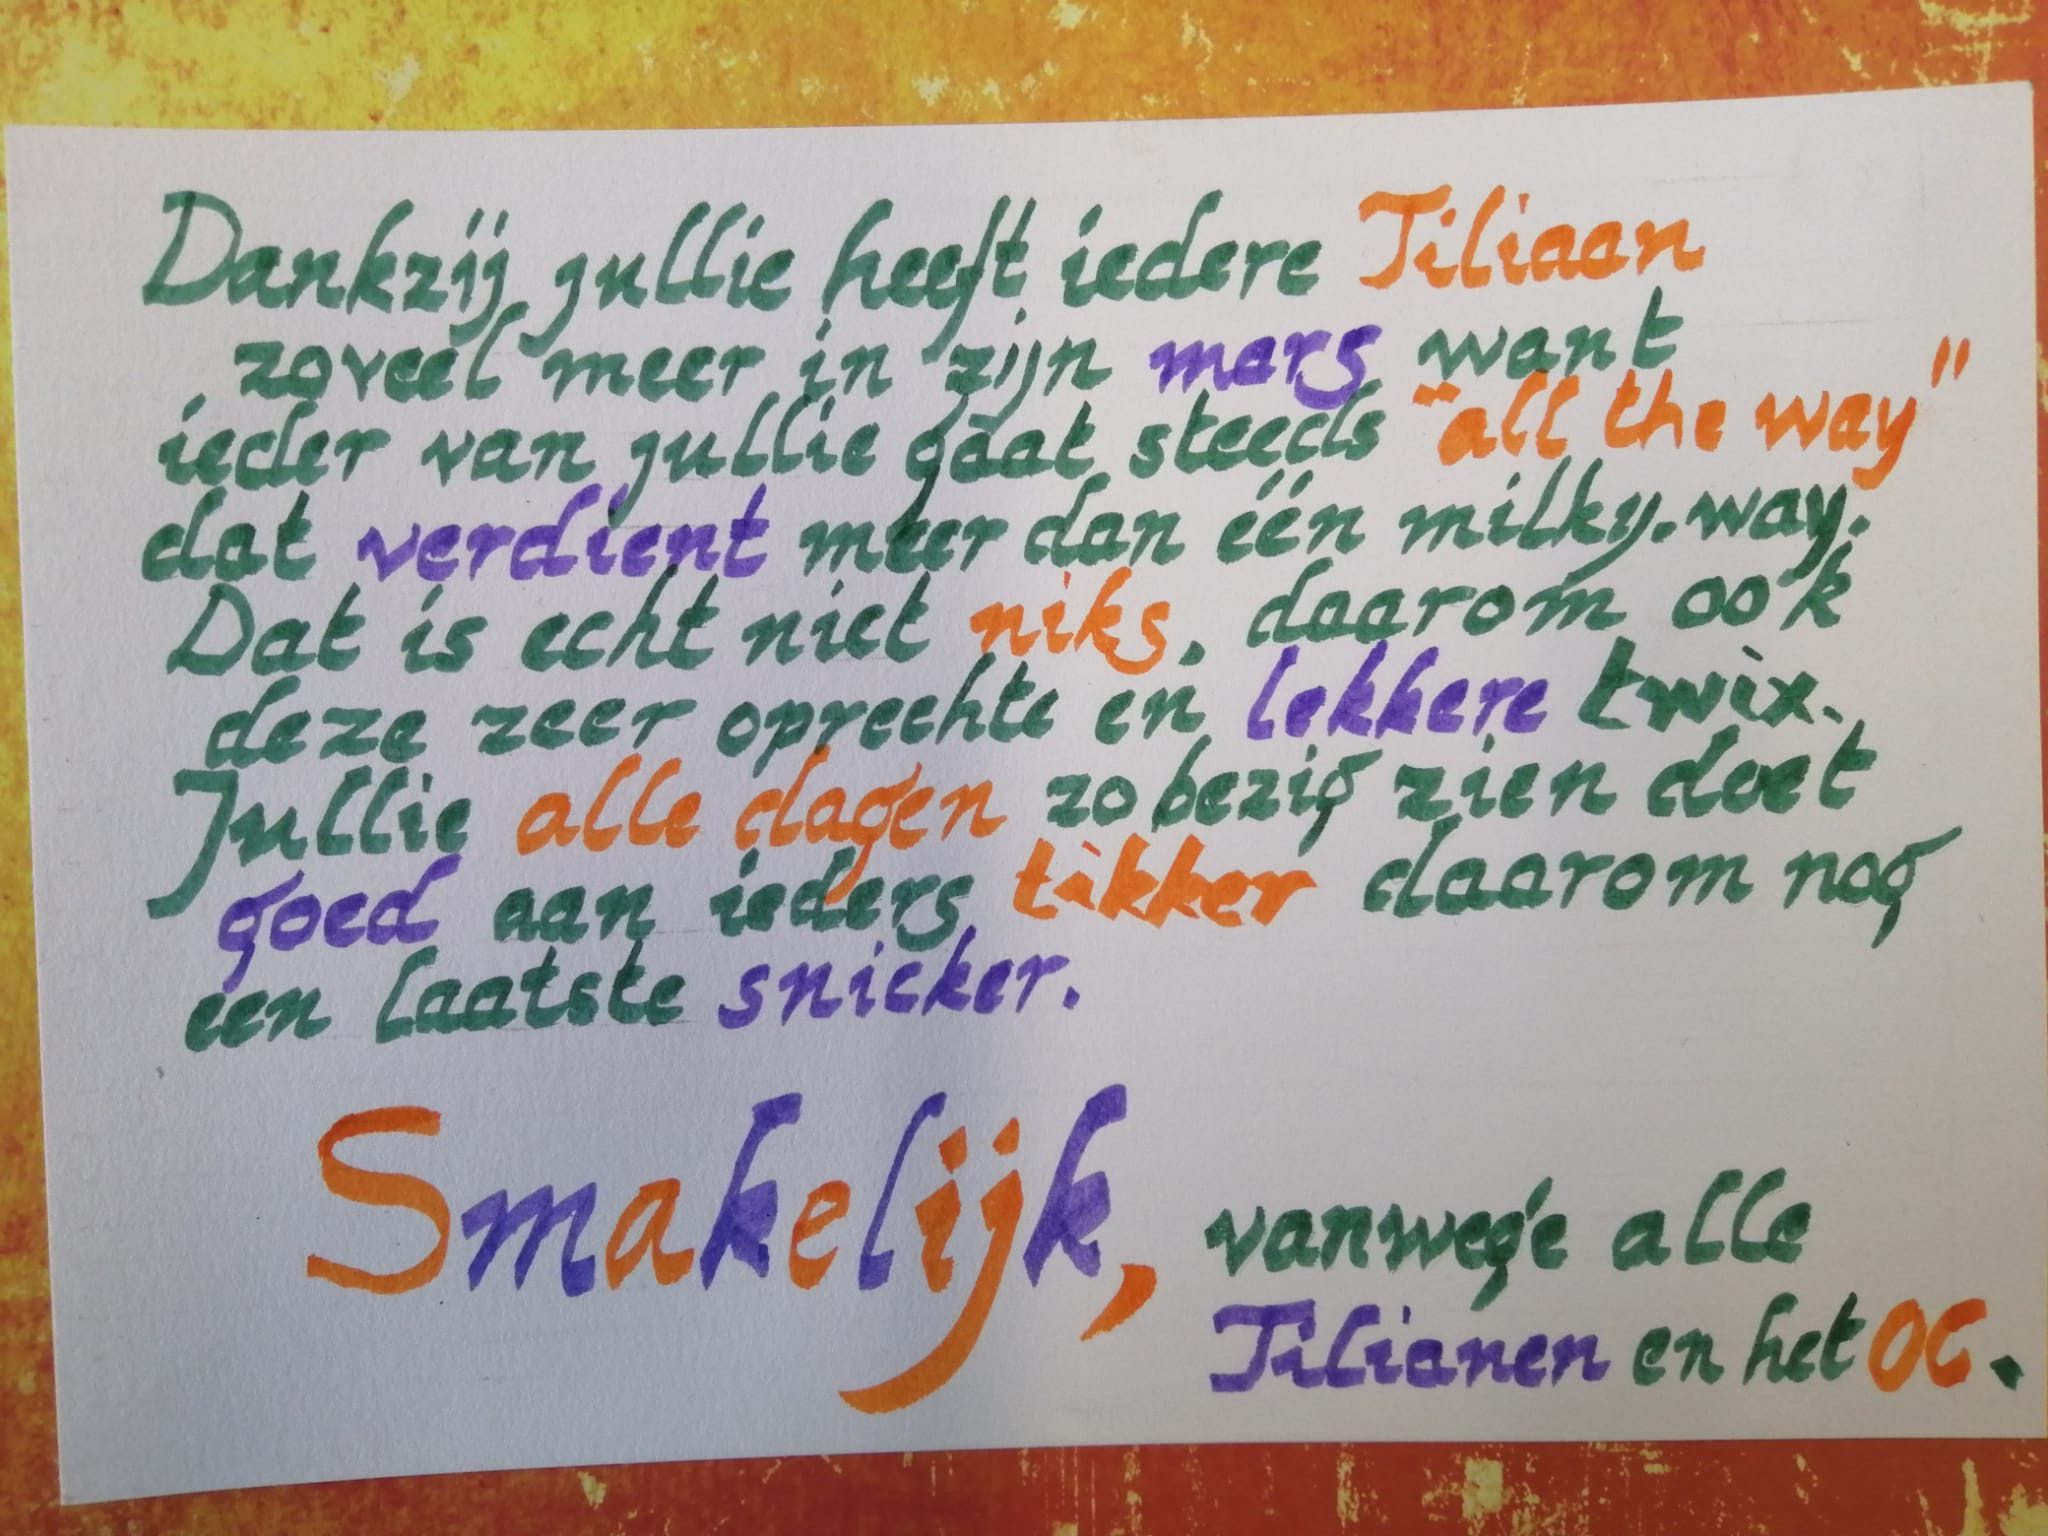 Dankzij jullie heeft iedere Tiliaan
zoveel meer in zijn mars want
ieder van jullie gaat steeds "all the way"
dat verdient meer dan één milky.way.
Dat is echt niet niks, daarom ook
deze zeer oprechte en lekkere twix.
Jullie alle dagen zo bezig zien doet
goed aan ieders tikker daarom nog
een laatste snicker.
Smakelijk, vanwege alle
Tilianen en het OC.